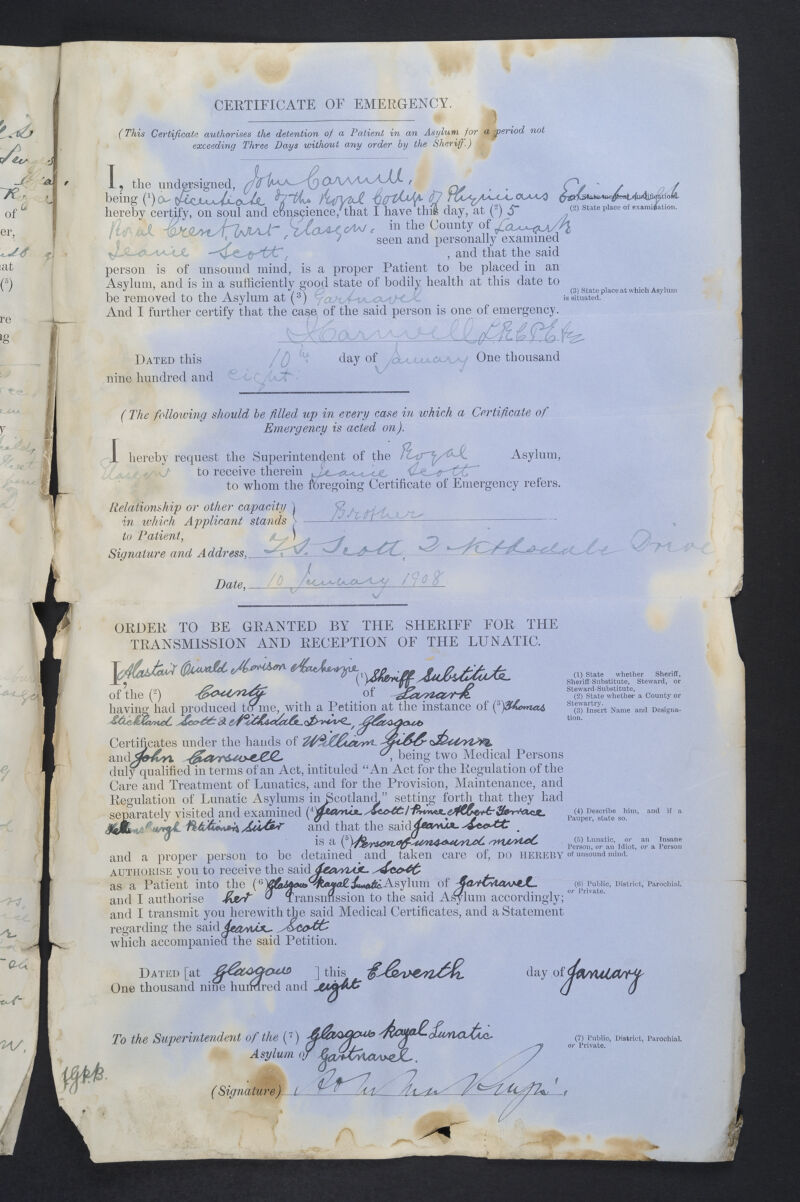 CERTIFICATE OF EMERGENCY.
(This Certificate authorises the detention of a Patient in an Asylum for a period not
exceeding Three Days without any order by the Sheriff.)
I, the undersigned, John Carswell,
being (¹) a Licentiate of the Royal College of Physicians Edinburgh
(1) State medical qualification.
hereby certify, on soul and conscience, that I have this day, at (²) 5
(2) State place of examination.
Royal Crescent, West, Glasgow, in the County of Lanark
seen and personally examined
Jeanie Scott, , and that the said
person is of unsound mind, is a proper Patient to be placed in an
Asylum, and is in a sufficiently good state of bodily health at this date to
be removed to the Asylum at (³) Gartnavel
(3) State place at which Asylum
is situated.
And I further certify that the case of the said person is one of emergency.
J Carswell L.R.C.P.E &c
DATED this 10th day of January One thousand
nine hundred and eight.
(The following should be filled up in every case in which a Certificate of
Emergency is acted on).
I hereby request the Superintendent of the Royal Asylum,
Glasgow to receive therein Jeanie Scott
to whom the foregoing Certificate of Emergency refers.
Relationship or other capacity
in which Applicant stands
to Patient,
Brother
Signature and Address, T. S. Scott, 2 Nithsdale Drive
Date, 10 January 1908
ORDER TO BE GRANTED BY THE SHERIFF FOR THE
TRANSMISSION AND RECEPTION OF THE LUNATIC.
I, Alastair Oswald Morison Mackenzie (¹) Sheriff Substitute
(1) State whether Sheriff,
Sheriff-Substitute, Steward, or
Steward-Substitute.
of the (²) County of Lanark
(2) State whether a County or
Stewartry.
having had produced to me, with a Petition at the instance of (³) Thomas
(3) Insert Name and Designa-
tion.
Stickland Scott 2 Nithsdale Drive, Glasgow
Certificates under the hands of William Gibb Dunn
and John Carswell , being two Medical Persons
duly qualified in terms of an Act, intituled “An Act for the Regulation of the
Care and Treatment of Lunatics, and for the Provision, Maintenance, and
Regulation of Lunatic Asylums in Scotland,” setting forth that they had
separately visited and examined (⁴) Jeanie Scott 1 Prince Albert Terrace
(4) Describe him, and if a
Pauper, state so.
Helensburgh Petitioner's Sister and that the said Jeanie Scott.
is a (⁵) Person of unsound mind
(5) Lunatic, or an Insane
Person, or an Idiot, or a Person
of unsound mind.
and a proper person to be detained and taken care of, DO HEREBY
AUTHORISE you to receive the said Jeanie Scott
as a Patient into the (⁶) Glasgow Royal Lunatic Asylum of Gartnavel
(6) Public, District, Parochial,
or Private.
and I authorise her Transmission to the said Asylum accordingly;
and I transmit you herewith the said Medical Certificates, and a Statement
regarding the said Jeanie Scott
which accompanied the said Petition.
DATED [at Glasgow ] this Eleventh day of January
One thousand nine hundred and eight
To the Superintendent of the (⁷) Glasgow Royal Lunatic
(7) Public, District, Parochial,
or Private.
Asylum of Gartnavel.
(Signature)